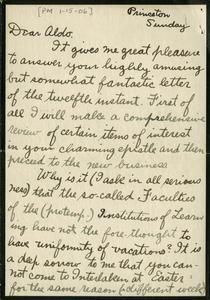 [PM 1-15-06]
Princeton
Sunday
Dear Aldo,
It gives me great pleasure
to answer your highly amusing
but somewhat fantastic letter
of the twelfth instant. First of
all I will make a comprehensive
review of certain items of interest
in your charming epistle and then
proceed to the new business.
Why is it (I ask in all serious
ness) that the so-called Faculties
of the (pretemp.) Institutions of Learn
ing have not the fore-thought to
have uniformity of vacations? It is
a deep sorrow to me that you can-
not come to Interlaken at Easter
for the same reason (different week